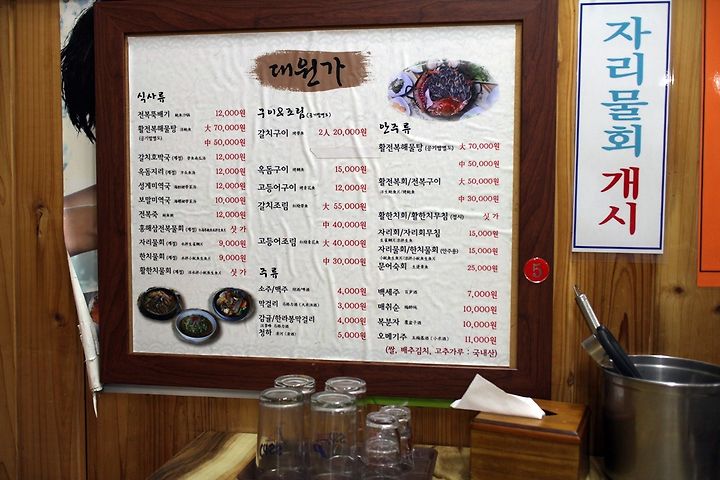 대원가
식사류
전복뚝배기 12,000원
활전복해물탕 大 70,000원
(공기밥별도) 中 50,000원
갈치호박국 (계절) 12,000원
옥돔지리 (계절) 12,000원
성게미역국 12,000원
보말미역국 10,000원
전복죽 12,000원
홍해삼전복물회 (계절) 싯가
자리물회 (계절) 9,000원
한치물회 (계절) 9,000원
활한치물회 (계절) 싯가
구이&조림 (공기밥별도)
갈치구이 2人 20,000원
옥돔구이 15,000원
고등어구이 12,000원
갈치조림 大 55,000원
中 40,000원
고등어조림 大 40,000원
中 30,000원
주류
소주/맥주 4,000원
막걸리 3,000원
감귤/한라봉막걸리 4,000원
청하 5,000원
안주류
활전복해물탕 (공기밥별도) 大 70,000원
中 50,000원
활전복회/전복구이 大 50,000원
中 30,000원
활한치회/활한치무침 (접시) 싯가
자리회/자리회무침 15,000원
자리물회/한치물회 (안주용) 15,000원
문어숙회 25,000원
백세주 7,000원
매취순 10,000원
복분자 10,000원
오메기주 11,000원
(쌀, 배추김치, 고추가루 : 국내산)
5
자리물회 개시